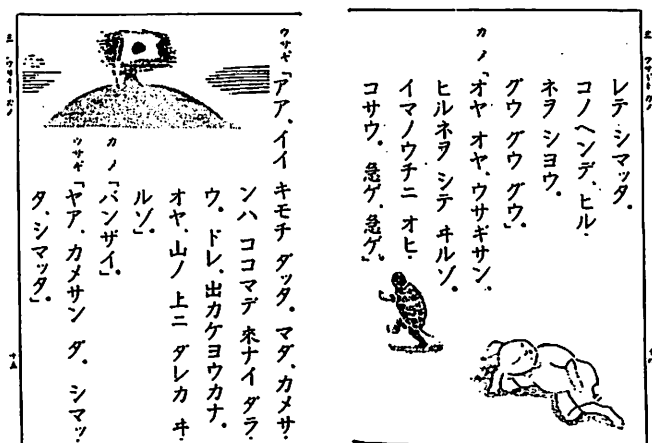 レテ シマッタ。
コノヘンデ、ヒル
ネヲ シヨウ。
グウ グウ グウ」。
カメ「オヤ オヤ、ウサギサン、
ヒルネヲ シテ ヰルゾ。
イマノウチニ オヒ
コサウ。急ゲ、急ゲ」。
ウサギ「アア、イイ キモチ ダッタ。マダ、カメサ
ンハ ココマデ 来ナイ ダラ
ウ。ドレ、出カケヨウカナ。
オヤ、山ノ 上ニ ダレカ ヰ
ルゾ」。
カメ「バンザイ」。
ウサギ「ヤア、カメサン ダ。シマッ
タ、シマッタ」。